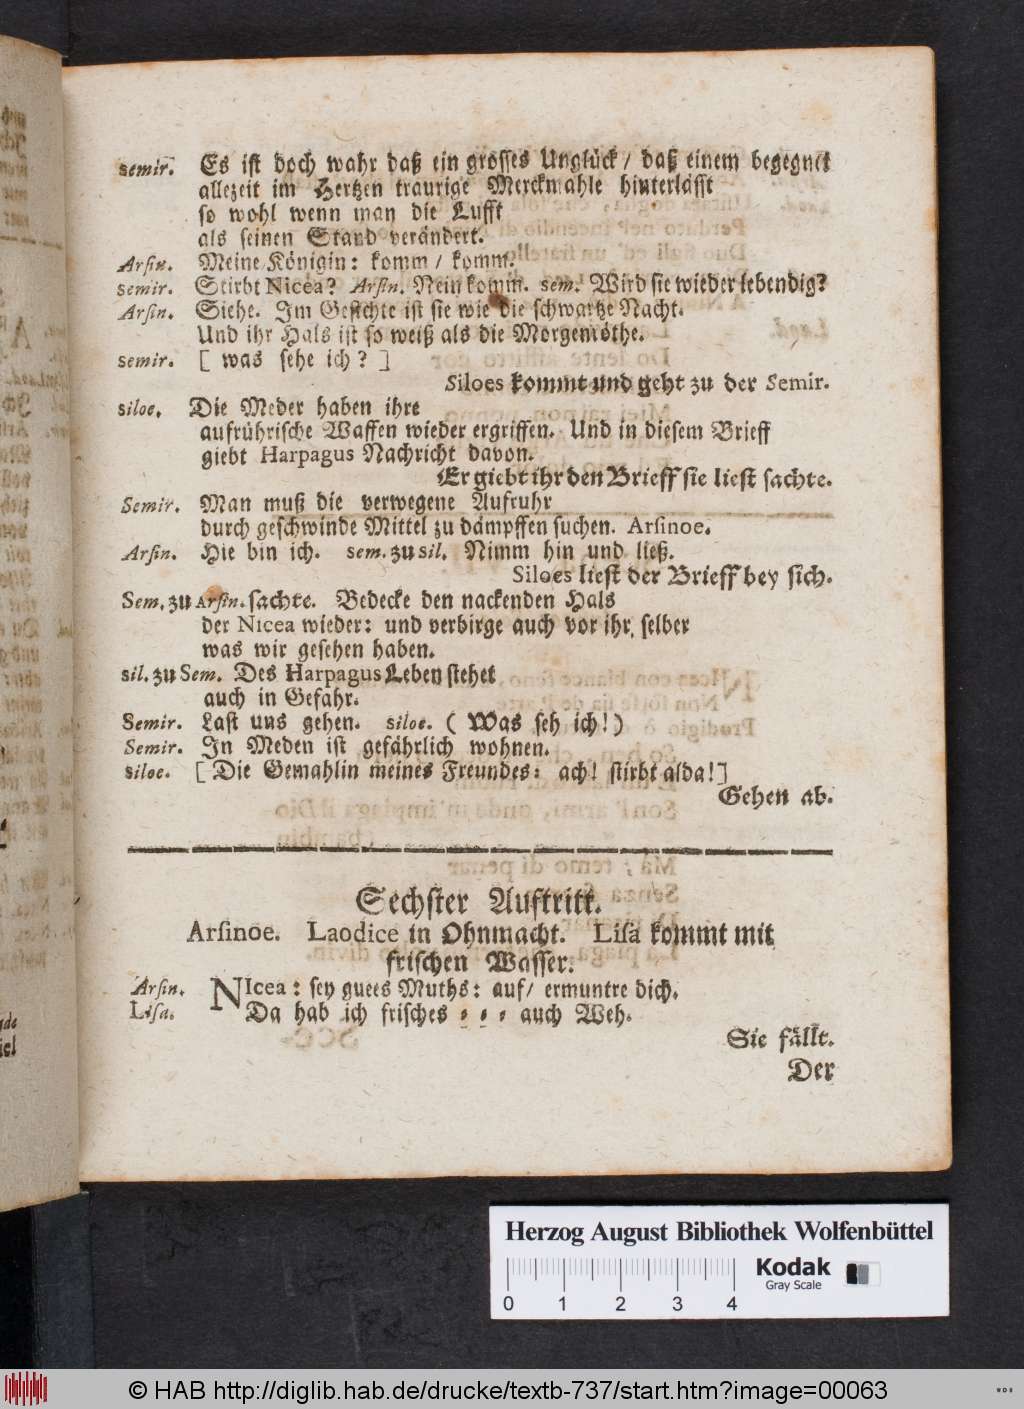 semir. Es ist doch wahr daß ein grosses Unglück / daß einem begegnet
allezeit im Hertzen traurige Merckmahle hinterlässt
so wohl wenn man die Lufft
als seinen Stand verändert.
Arsin. Meine Königin: komm / komm.
semir. Stirbt Nicea? Arsin. Nein komm. sem. Wird sie wieder lebendig?
Arsin. Siehe. Im Gesichte ist sie wie die schwartze Nacht.
Und ihr Hals ist so weiß als die Morgenröthe.
semir. [ was sehe ich? ]
Siloes kommt und geht zu der Semir.
siloe. Die Meder haben ihre
aufrührische Waffen wieder ergriffen. Und in diesem Brieff
giebt Harpagus Nachricht davon.
Er giebt ihr den Brieff sie liest sachte.
Semir. Man muß die verwegene Aufruhr
durch geschwinde Mittel zu dämpffen suchen. Arsinoe.
Arsin. Hie bin ich. sem. zu sil. Nimm hin und ließ.
Siloes liest der Brieff bey sich.
Sem. zu Arsin. sachte. Bedecke den nackenden Hals
der Nicea wieder: und verbirge auch vor ihr selber
was wir gesehen haben.
sil. zu Sem. Des Harpagus Leben stehet
auch in Gefahr.
Semir. Last uns gehen. siloe. ( Was seh ich! )
Semir. In Meden ist gefährlich wohnen.
siloe. [ Die Gemahlin meines Freundes: ach! stirbt alda! ]
Gehen ab.
Sechster Auftritt.
Arsinoe. Laodice in Ohnmacht. Lisa kommt mit
frischen Wasser.
Arsin. NIcea: sey gutes Muths: auf / ermuntre dich.
Lisa. Da hab ich frisches = = = auch Weh.
Sie fällt.
Der
Herzog August Bibliothek Wolfenbüttel
Kodak
Gray Scale
0 1 2 3 4
© HAB http://diglib.hab.de/drucke/textb-737/start.htm?image=00063